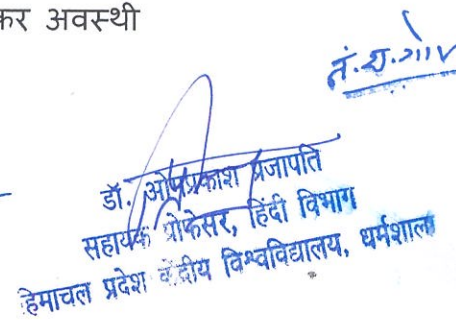 कर अवस्थी
डॉ. ओमप्रकाश प्रजापति
सहायक प्रोफेसर, हिंदी विभाग
हिमाचल प्रदेश केंद्रीय विश्वविद्यालय, धर्मशाला